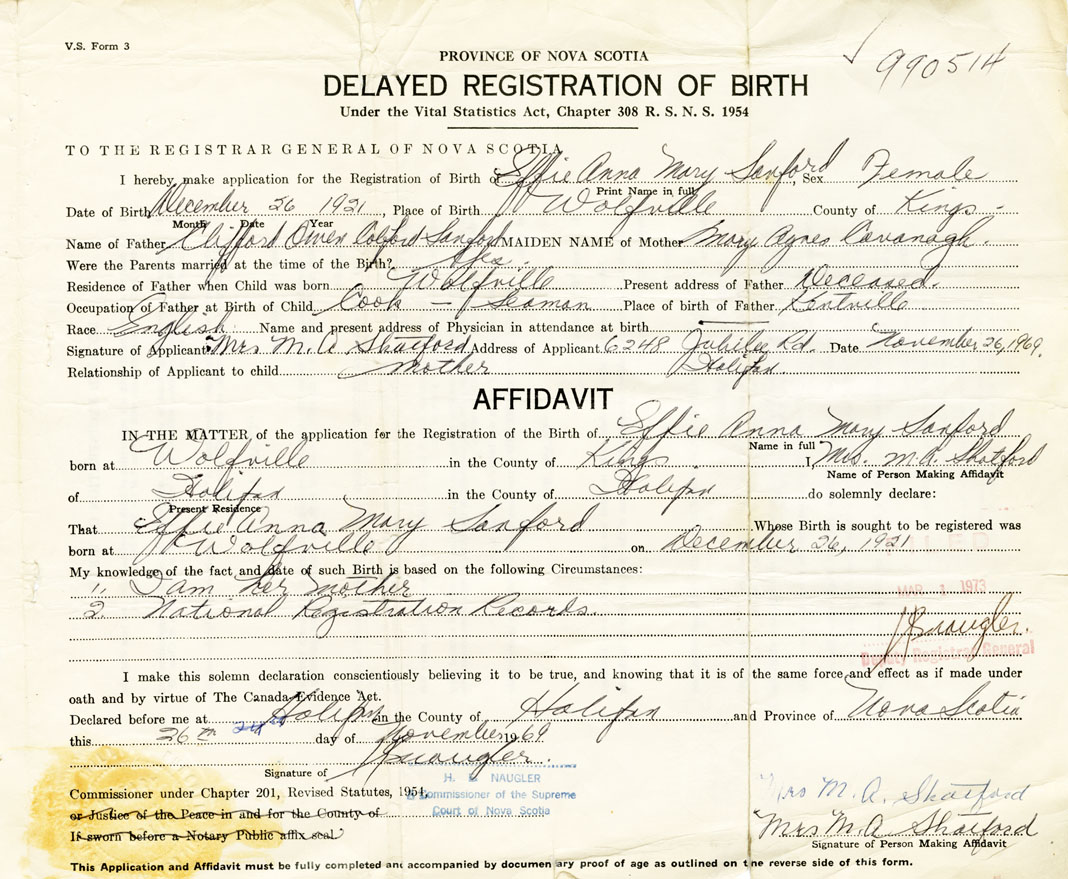 V.S. Form 3
990514
PROVINCE OF NOVA SCOTIA
DELAYED REGISTRATION OF BIRTH
Under the Vital Statistics Act, Chapter 308 R. S. N. S. 1954
TO THE REGISTRAR GENERAL OF NOVA SCOTIA
I hereby make application for the Registration of Birth of Effie Anna Mary Sanford, Sex Female
Print Name in full
Date of Birth December 26 1921, Place of Birth Wolfville County of Kings
Month - Date Year
Name of Father Clifford Owen Colford Sanford MAIDEN NAME of Mother Mary Agnes Cavanagh.
Were the Parents married at the time of the Birth? Yes.
Residence of Father when Child was born Wolfville Present address of Father Deceased.
Occupation of Father at Birth of Child Cook - Seaman Place of birth of Father Kentville
Race English Name and present address of Physician in attendance at birth
Signature of Applicant Mrs M. A Shatford Address of Applicant 6248 Jubilee Rd. Date November 26, 1969.
Relationship of Applicant to child mother Halifax
AFFIDAVIT
IN THE MATTER of the application for the Registration of the Birth of Effie Anna Mary Sanford
Name in full
born at Wolfville in the County of Kings I, Mrs. M. A. Shatford
Name of Person Making Affidavit
of Halifax in the County of Halifax do solemnly declare:
Present Residence
That Effie Anna Mary Sanford Whose Birth is sought to be registered was
born at Wolfville on December 26, 1921
FILED
My knowledge of the fact and date of such Birth is based on the following Circumstances:
1. I am her mother
MAR 1 1973
2. National Registration Records.
Naugler.
Deputy Registrar General
I make this solemn declaration conscientiously believing it to be true, and knowing that it is of the same force and effect as if made under
oath and by virtue of The Canada Evidence Act.
Declared before me at Halifax in the County of Halifax and Province of Nova Scotia
this 26th day of November 1969
Naugler.
Signature of
H. NAUGLER
A Commissioner of the Supreme
Court of Nova Scotia
Commissioner under Chapter 201, Revised Statutes, 1954
or Justice of the Peace in and for the County of
If sworn before a Notary Public affix seal
Mrs M. A. Shatford
Mrs M. A Shatford
Signature of Person Making Affidavit
This Application and Affidavit must be fully completed and accompanied by documentary proof of age as outlined on the reverse side of this form.